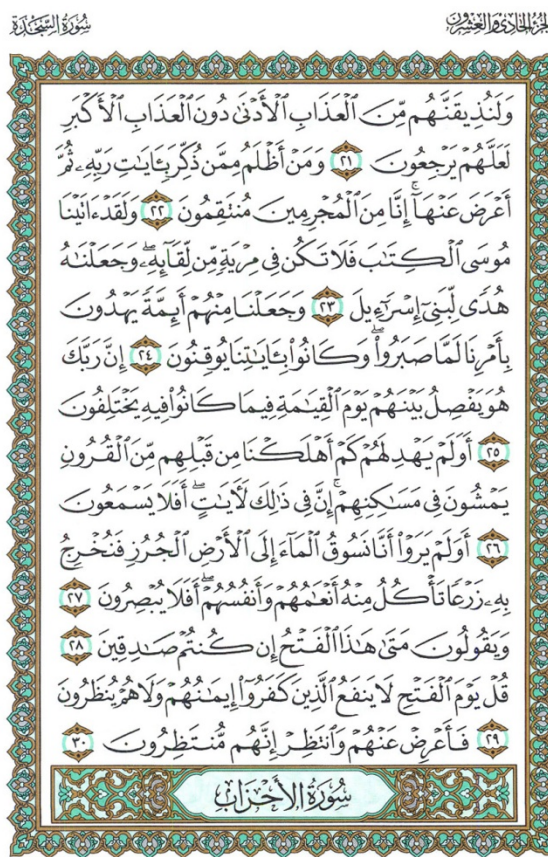 الجزء الحادي والعشرون
سُورَةُ السَّجْدَةِ
وَلَنُذِيقَنَّهُم مِّنَ ٱلْعَذَابِ ٱلْأَدْنَىٰ دُونَ ٱلْعَذَابِ ٱلْأَكْبَرِ
لَعَلَّهُمْ يَرْجِعُونَ ٢١ وَمَنْ أَظْلَمُ مِمَّن ذُكِّرَ بِـَٔايَٰتِ رَبِّهِۦ ثُمَّ
أَعْرَضَ عَنْهَآ ۚ إِنَّا مِنَ ٱلْمُجْرِمِينَ مُنتَقِمُونَ ٢٢ وَلَقَدْ ءَاتَيْنَا
مُوسَى ٱلْكِتَٰبَ فَلَا تَكُن فِى مِرْيَةٍ مِّن لِّقَآئِهِۦ ۖ وَجَعَلْنَٰهُ
هُدًى لِّبَنِىٓ إِسْرَٰٓءِيلَ ٢٣ وَجَعَلْنَا مِنْهُمْ أَئِمَّةً يَهْدُونَ
بِأَمْرِنَا لَمَّا صَبَرُوا۟ ۖ وَكَانُوا۟ بِـَٔايَٰتِنَا يُوقِنُونَ ٢٤ إِنَّ رَبَّكَ
هُوَ يَفْصِلُ بَيْنَهُمْ يَوْمَ ٱلْقِيَٰمَةِ فِيمَا كَانُوا۟ فِيهِ يَخْتَلِفُونَ
٢٥ أَوَلَمْ يَهْدِ لَهُمْ كَمْ أَهْلَكْنَا مِن قَبْلِهِم مِّنَ ٱلْقُرُونِ
يَمْشُونَ فِى مَسَٰكِنِهِمْ ۚ إِنَّ فِى ذَٰلِكَ لَـَٔايَٰتٍ ۖ أَفَلَا يَسْمَعُونَ
٢٦ أَوَلَمْ يَرَوْا۟ أَنَّا نَسُوقُ ٱلْمَآءَ إِلَى ٱلْأَرْضِ ٱلْجُرُزِ فَنُخْرِجُ
بِهِۦ زَرْعًا تَأْكُلُ مِنْهُ أَنْعَٰمُهُمْ وَأَنفُسُهُمْ ۖ أَفَلَا يُبْصِرُونَ ٢٧
وَيَقُولُونَ مَتَىٰ هَٰذَا ٱلْفَتْحُ إِن كُنتُمْ صَٰدِقِينَ ٢٨
قُلْ يَوْمَ ٱلْفَتْحِ لَا يَنفَعُ ٱلَّذِينَ كَفَرُوٓا۟ إِيمَٰنُهُمْ وَلَا هُمْ يُنظَرُونَ
٢٩ فَأَعْرِضْ عَنْهُمْ وَٱنتَظِرْ إِنَّهُم مُّنتَظِرُونَ ٣٠
سُورَةُ الأَحْزَابِ